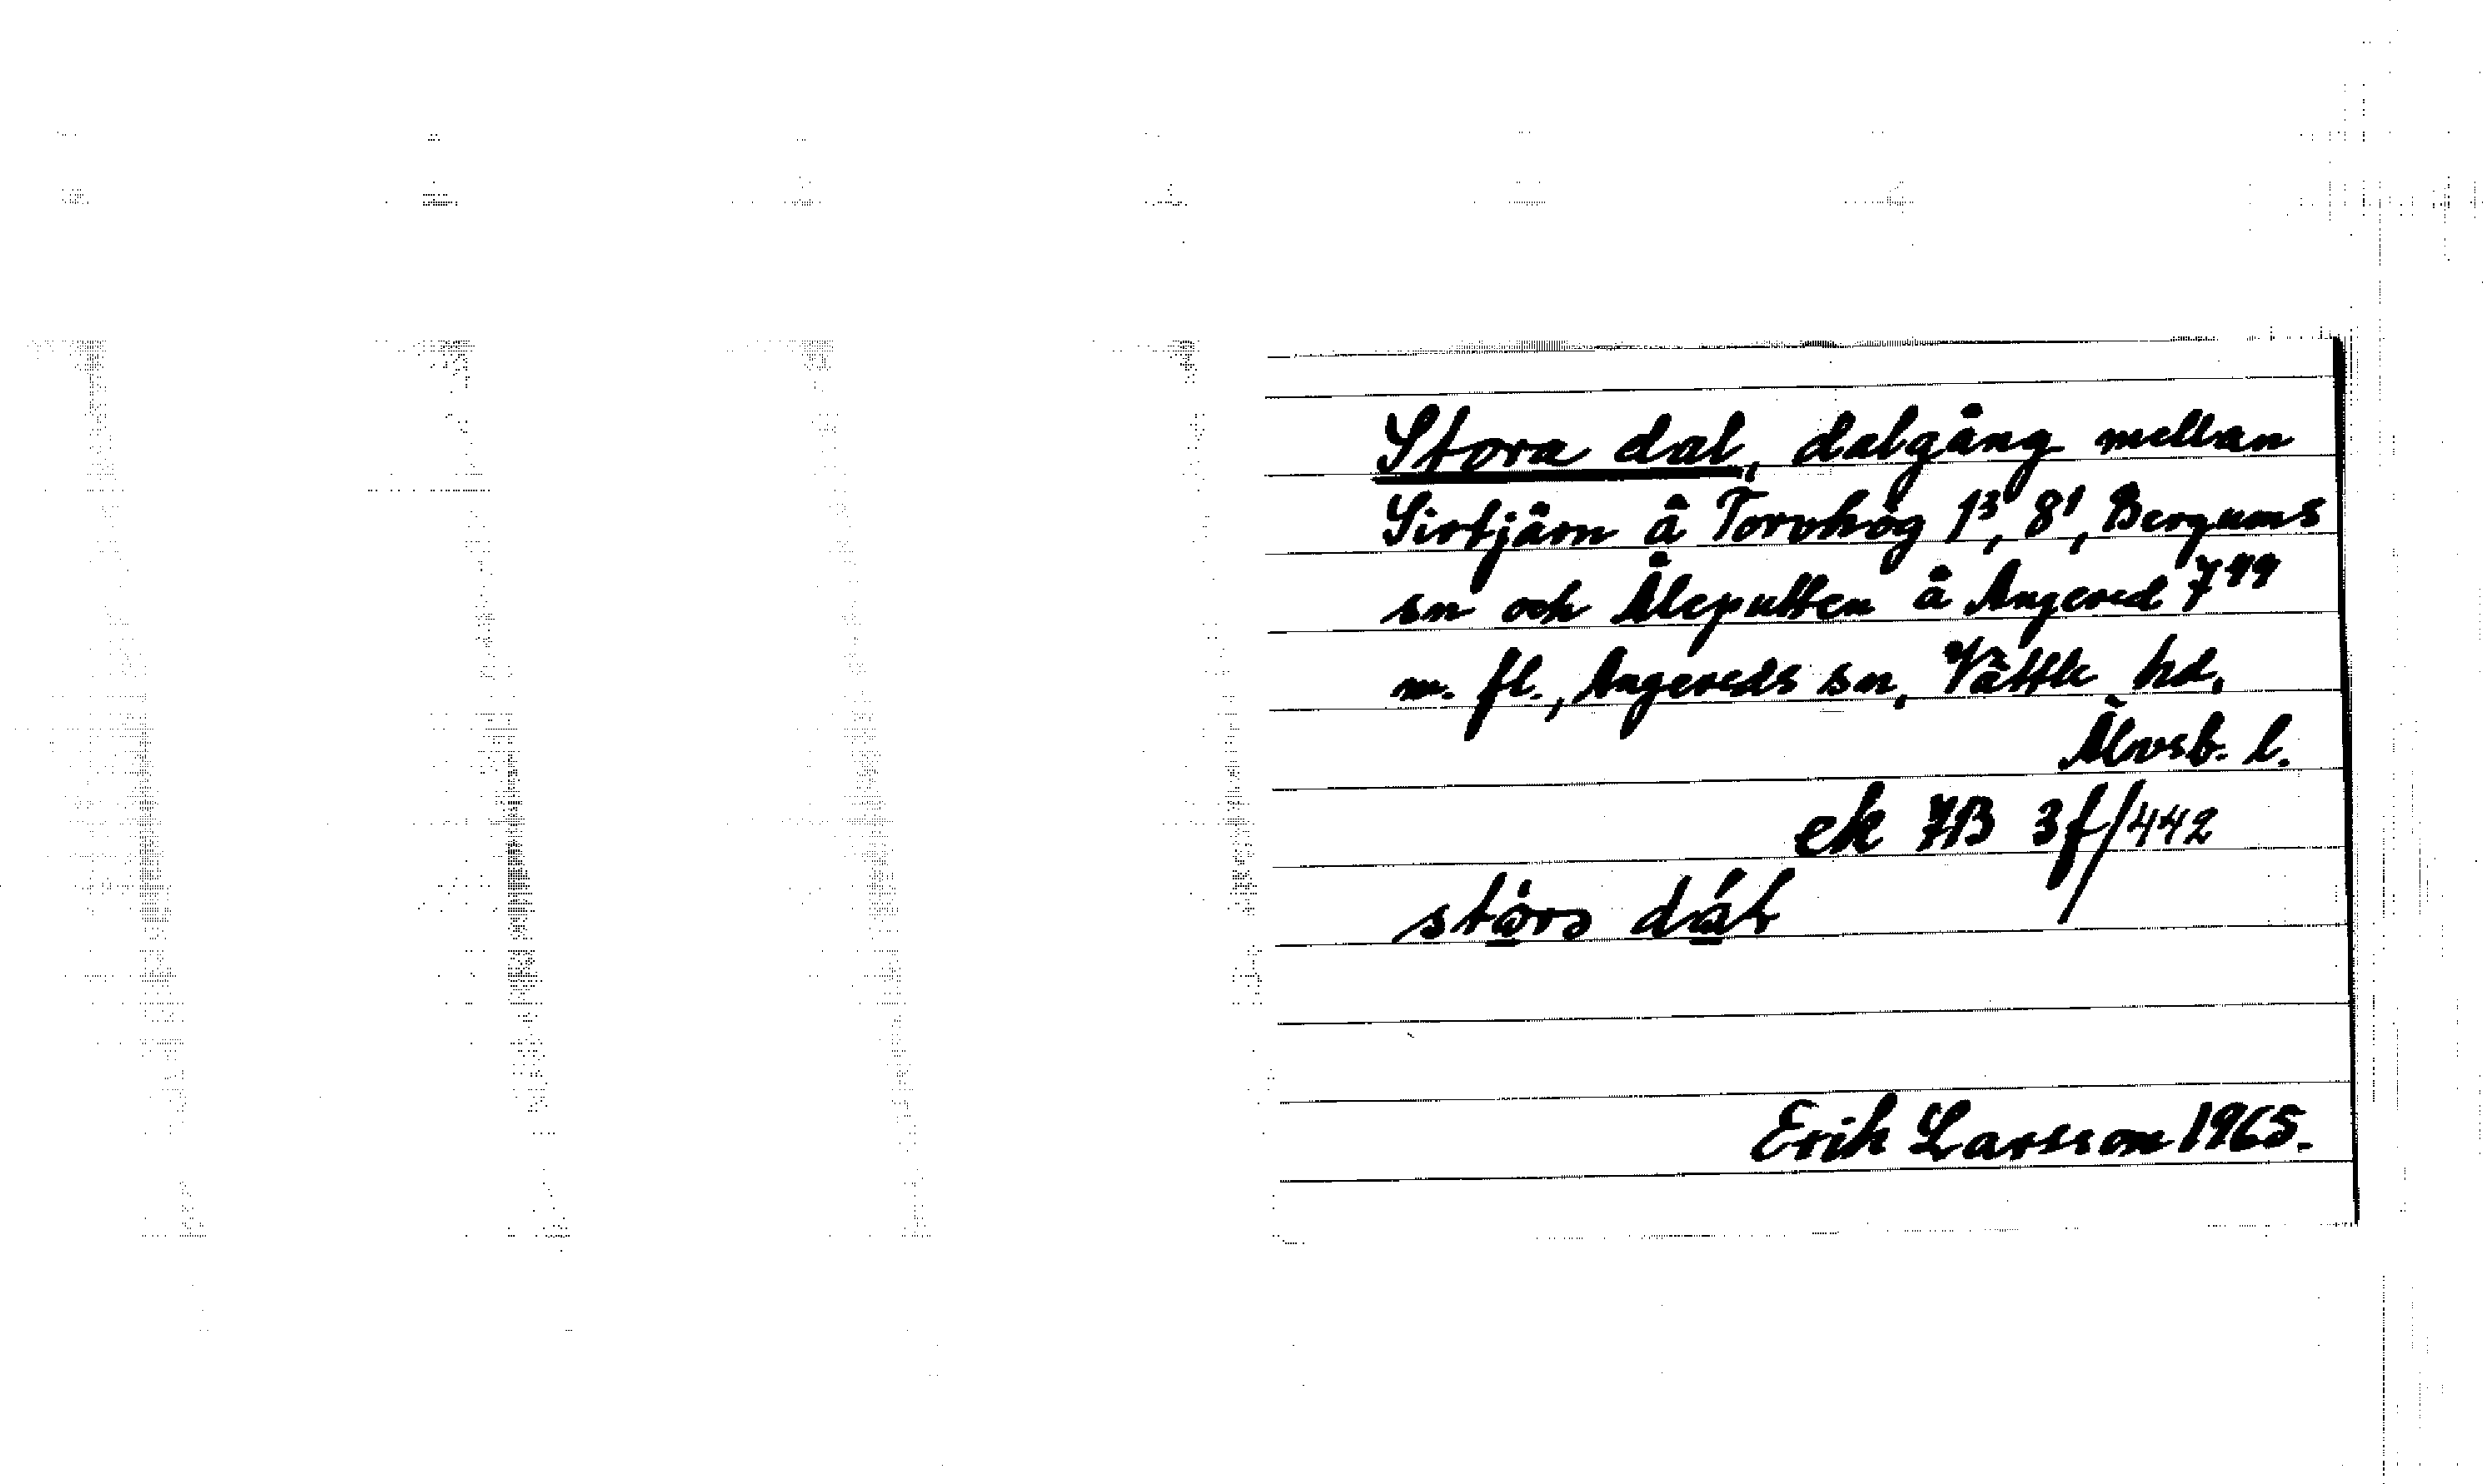 Stora dal, dalgång mellan
Sirtjärn å Torvhög 1³, 8¹, Bergums
sn och Åleputten å Angered 7⁴⁹
m. fl., Angereds sn, Vättle hd,
Älvsb. l.
ek 7B 3f/442
Erik Larsson 1965.